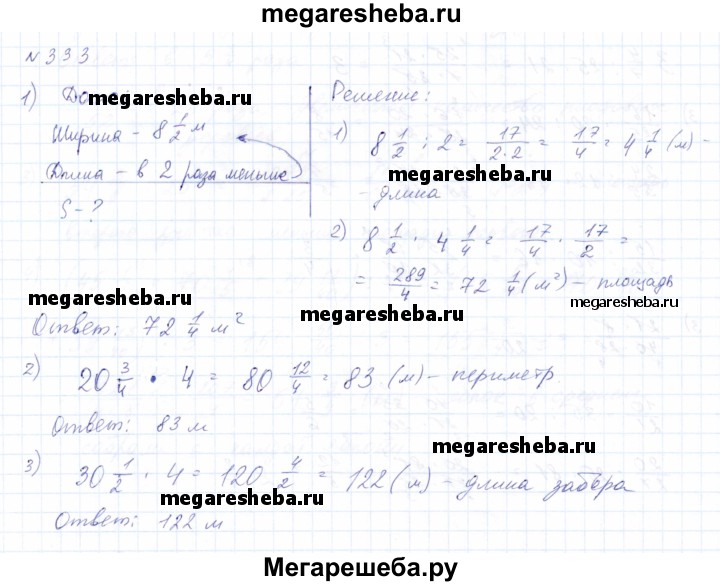 megaresheba.ru
№ 333
1) Дано:
megaresheba.ru
Ширина - 8 1/2 м
Длина - в 2 раза меньше
S - ?
Решение:
1) 8 1/2 : 2 = 17/2·2 = 17/4 = 4 1/4 (м) -
megaresheba.ru
- длина
2) 8 1/2 · 4 1/4 = 17/4 · 17/2 =
= 289/4 = 72 1/4 (м²) - площадь
megaresheba.ru
megaresheba.ru
megaresheba.ru
Ответ: 72 1/4 м²
2) 20 3/4 · 4 = 80 12/4 = 83 (м) - периметр.
Ответ: 83 м
megaresheba.ru
3) 30 1/2 · 4 = 120 4/2 = 122 (м) - длина забора
megaresheba.ru
Ответ: 122 м
Мегарешеба.ру